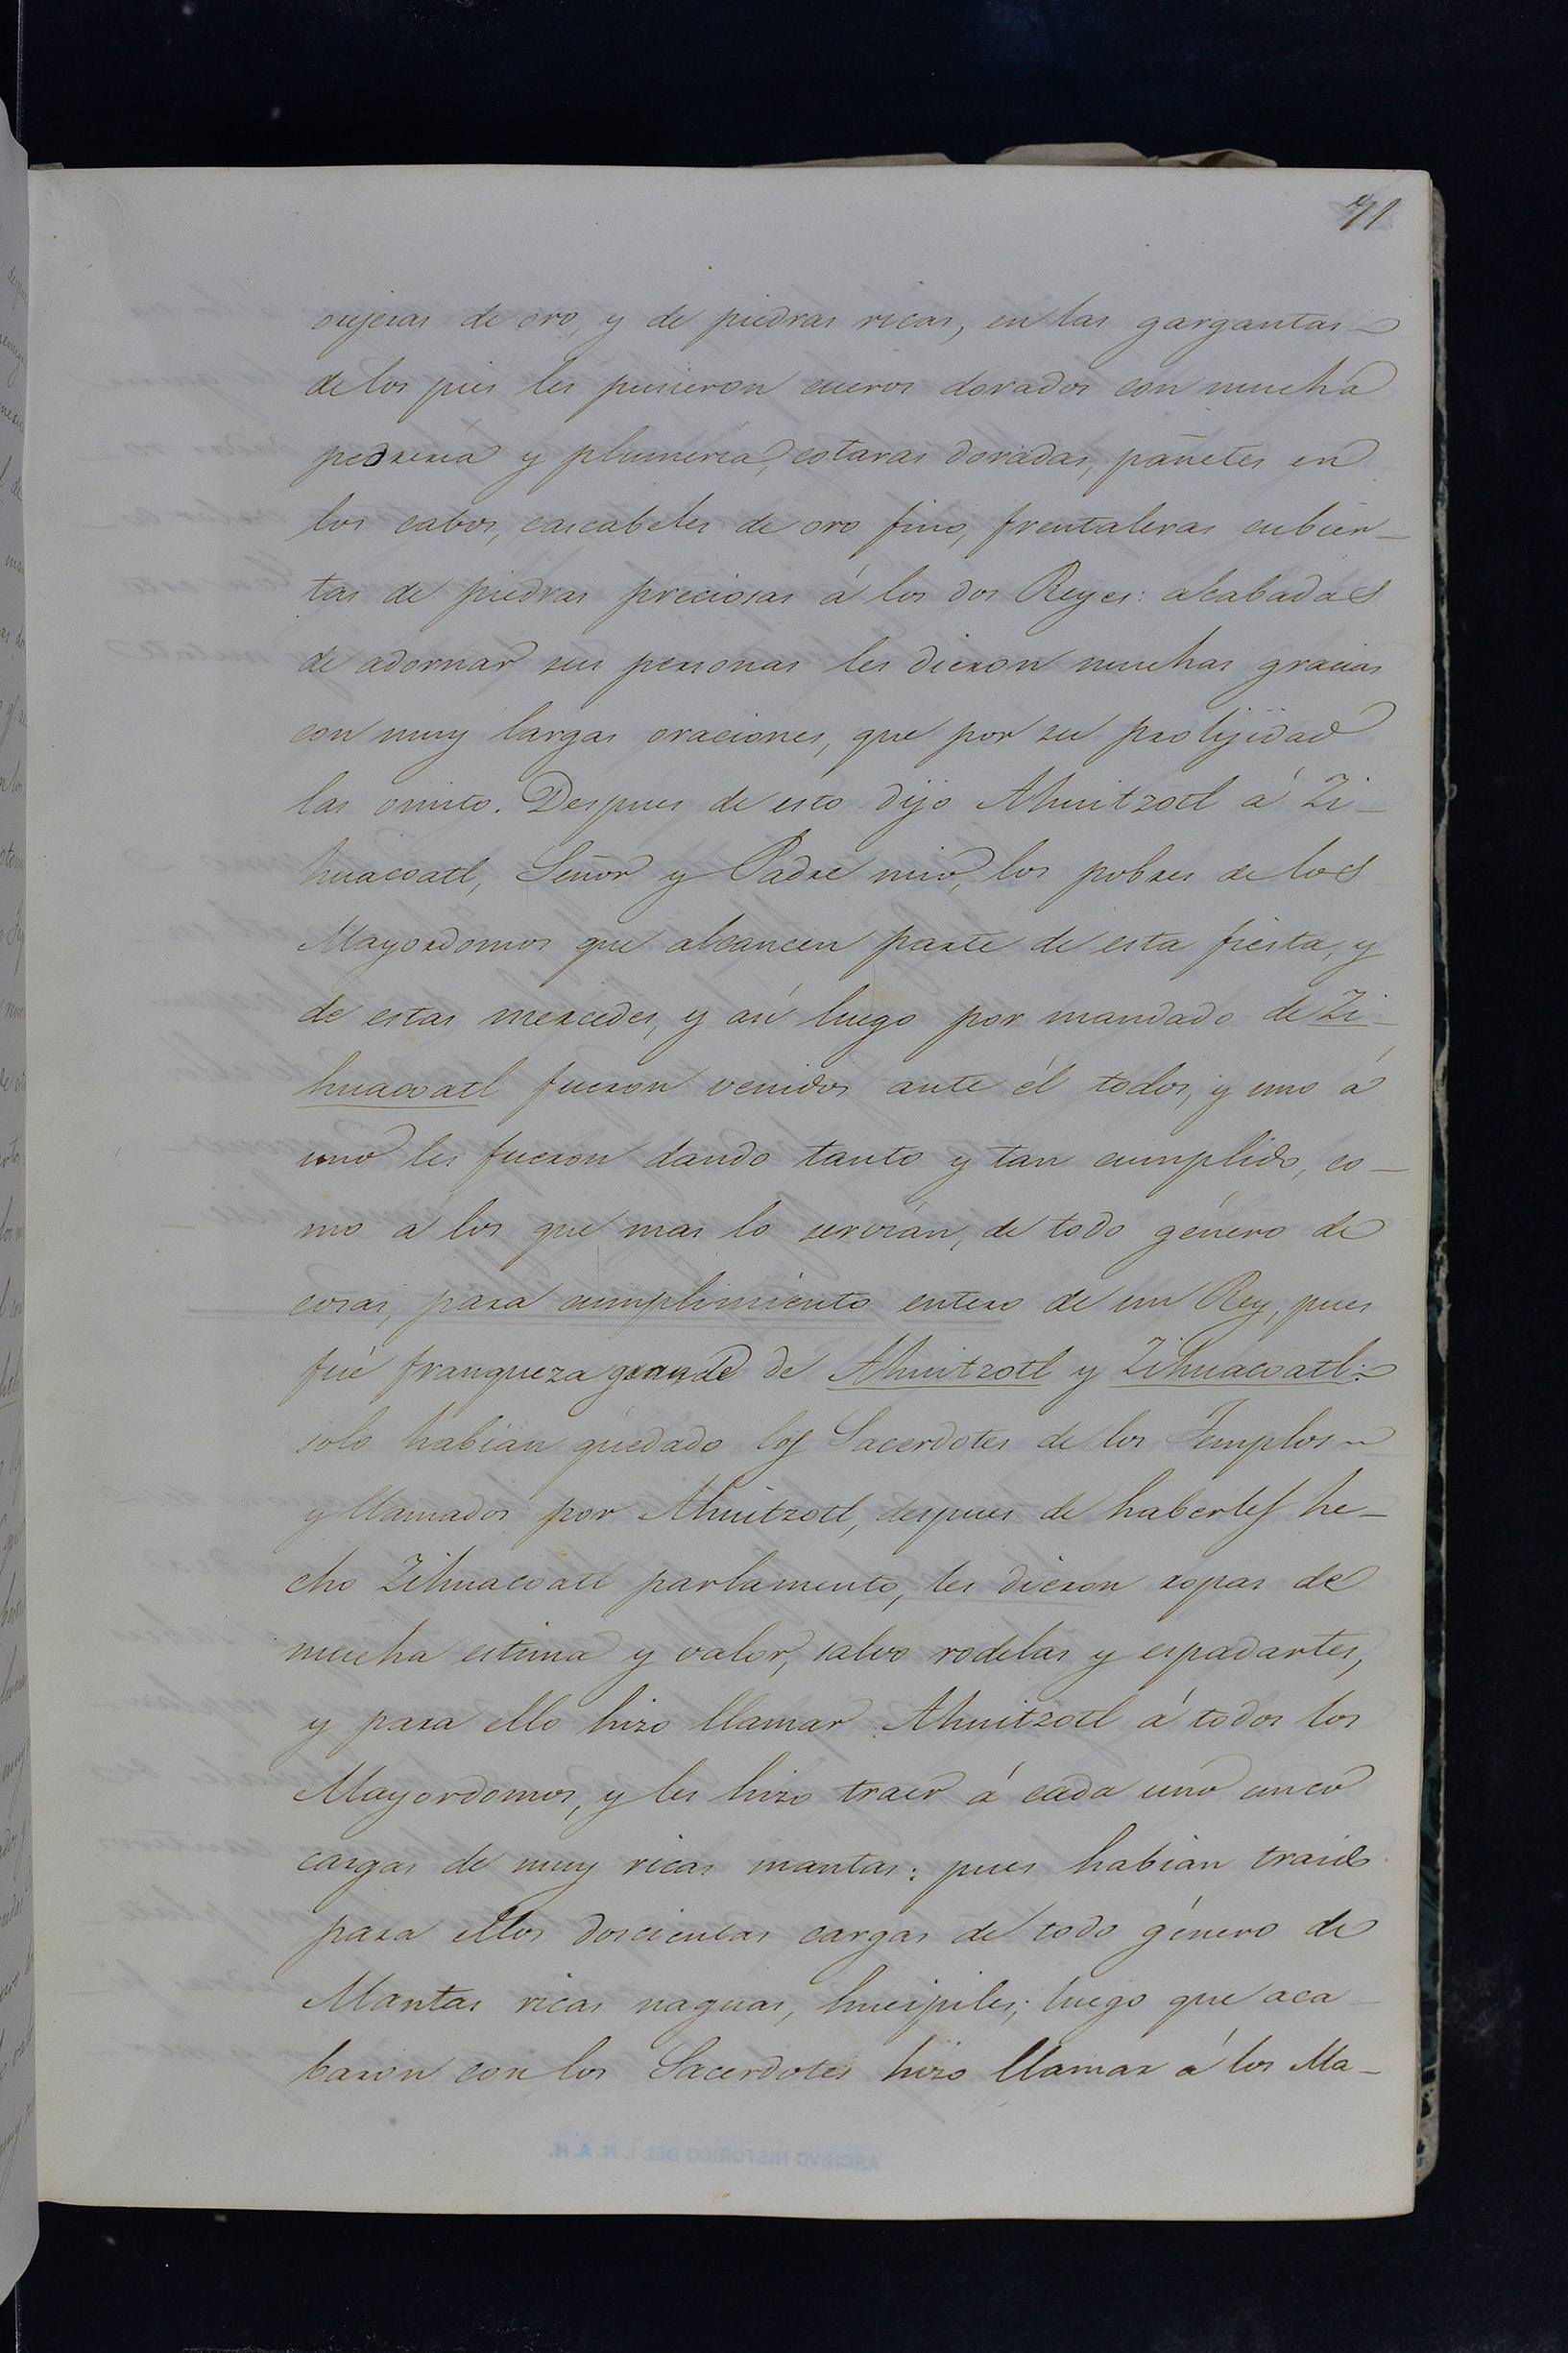 71
orejeras de oro, y de piedras ricas, en las gargantas
de los pies les pusieron cueros dorados con mucha
pedreria y plumeria, cotaras doradas, pañetes en
los cabos, cascabeles de oro fino, frentaleras cubier-
tas de piedras preciosas á los dos Reyes: acabadas
de adornar sus personas les dieron muchas gracias
con muy largas oraciones, que por su prolijidad
las omito. Despues de esto dijo Ahuitzotl á Zi-
huacoatl, Señor y Padre mio, los pobres de los
Mayordomos que alcancen parte de esta fiesta, y
de estas mercedes, y asi luego por mandado de Zi-
huacoatl fueron venidos ante él todos, y uno á
uno les fueron dando tanto y tan cumplido, co-
mo á los que mas lo servian, de todo género de
cosas, para cumplimiento entero de un Rey, pues
fué franqueza grande de Ahuitzotl y Zihuacoatl:
solo habian quedado los Sacerdotes de los Templos
y llamados por Ahuitzotl, despues de haberles he-
cho Zihuacoatl parlamento, les dieron ropas de
mucha estima y valor, salvo rodelas y espadartes,
y para ello hizo llamar Ahuitzotl á todos los
Mayordomos, y les hizo traer á cada uno cinco
cargas de muy ricas mantas: pues habian traido
para ellos doscientas cargas de todo género de
Mantas ricas naguas, hueipiles; luego que aca-
baron con los Sacerdotes hizo llamar á los Ma-
ARCHIVO HISTORICO DEL I. N. A. H.